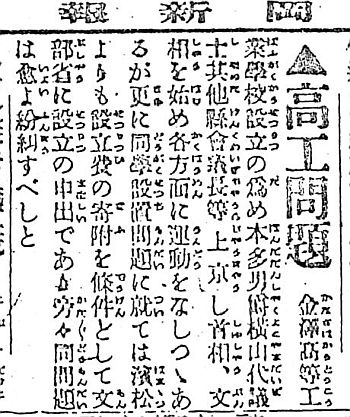 聞新報
▲高工問題　金澤高等工
業學校設立の爲め本多男爵横山代議
士其他縣會議長等上京し首相、文
相を始め各方面に運動をなしつゝあ
るが更に同學設置問題に就ては濱松
よりも設立費の寄附を條件として文
部省に設立の申出であり旁々同問題
は愈よ紛糾すべしと